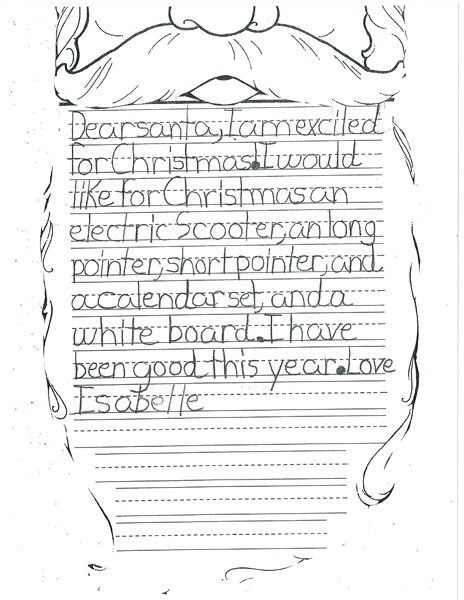 Dear santa, I am excited
for Christmas. I would
like for Christmas an
electric Scooter, an long
pointer, short pointer, and
a calendar set, and a
white board. I have
been good this year. Love
Isabelle